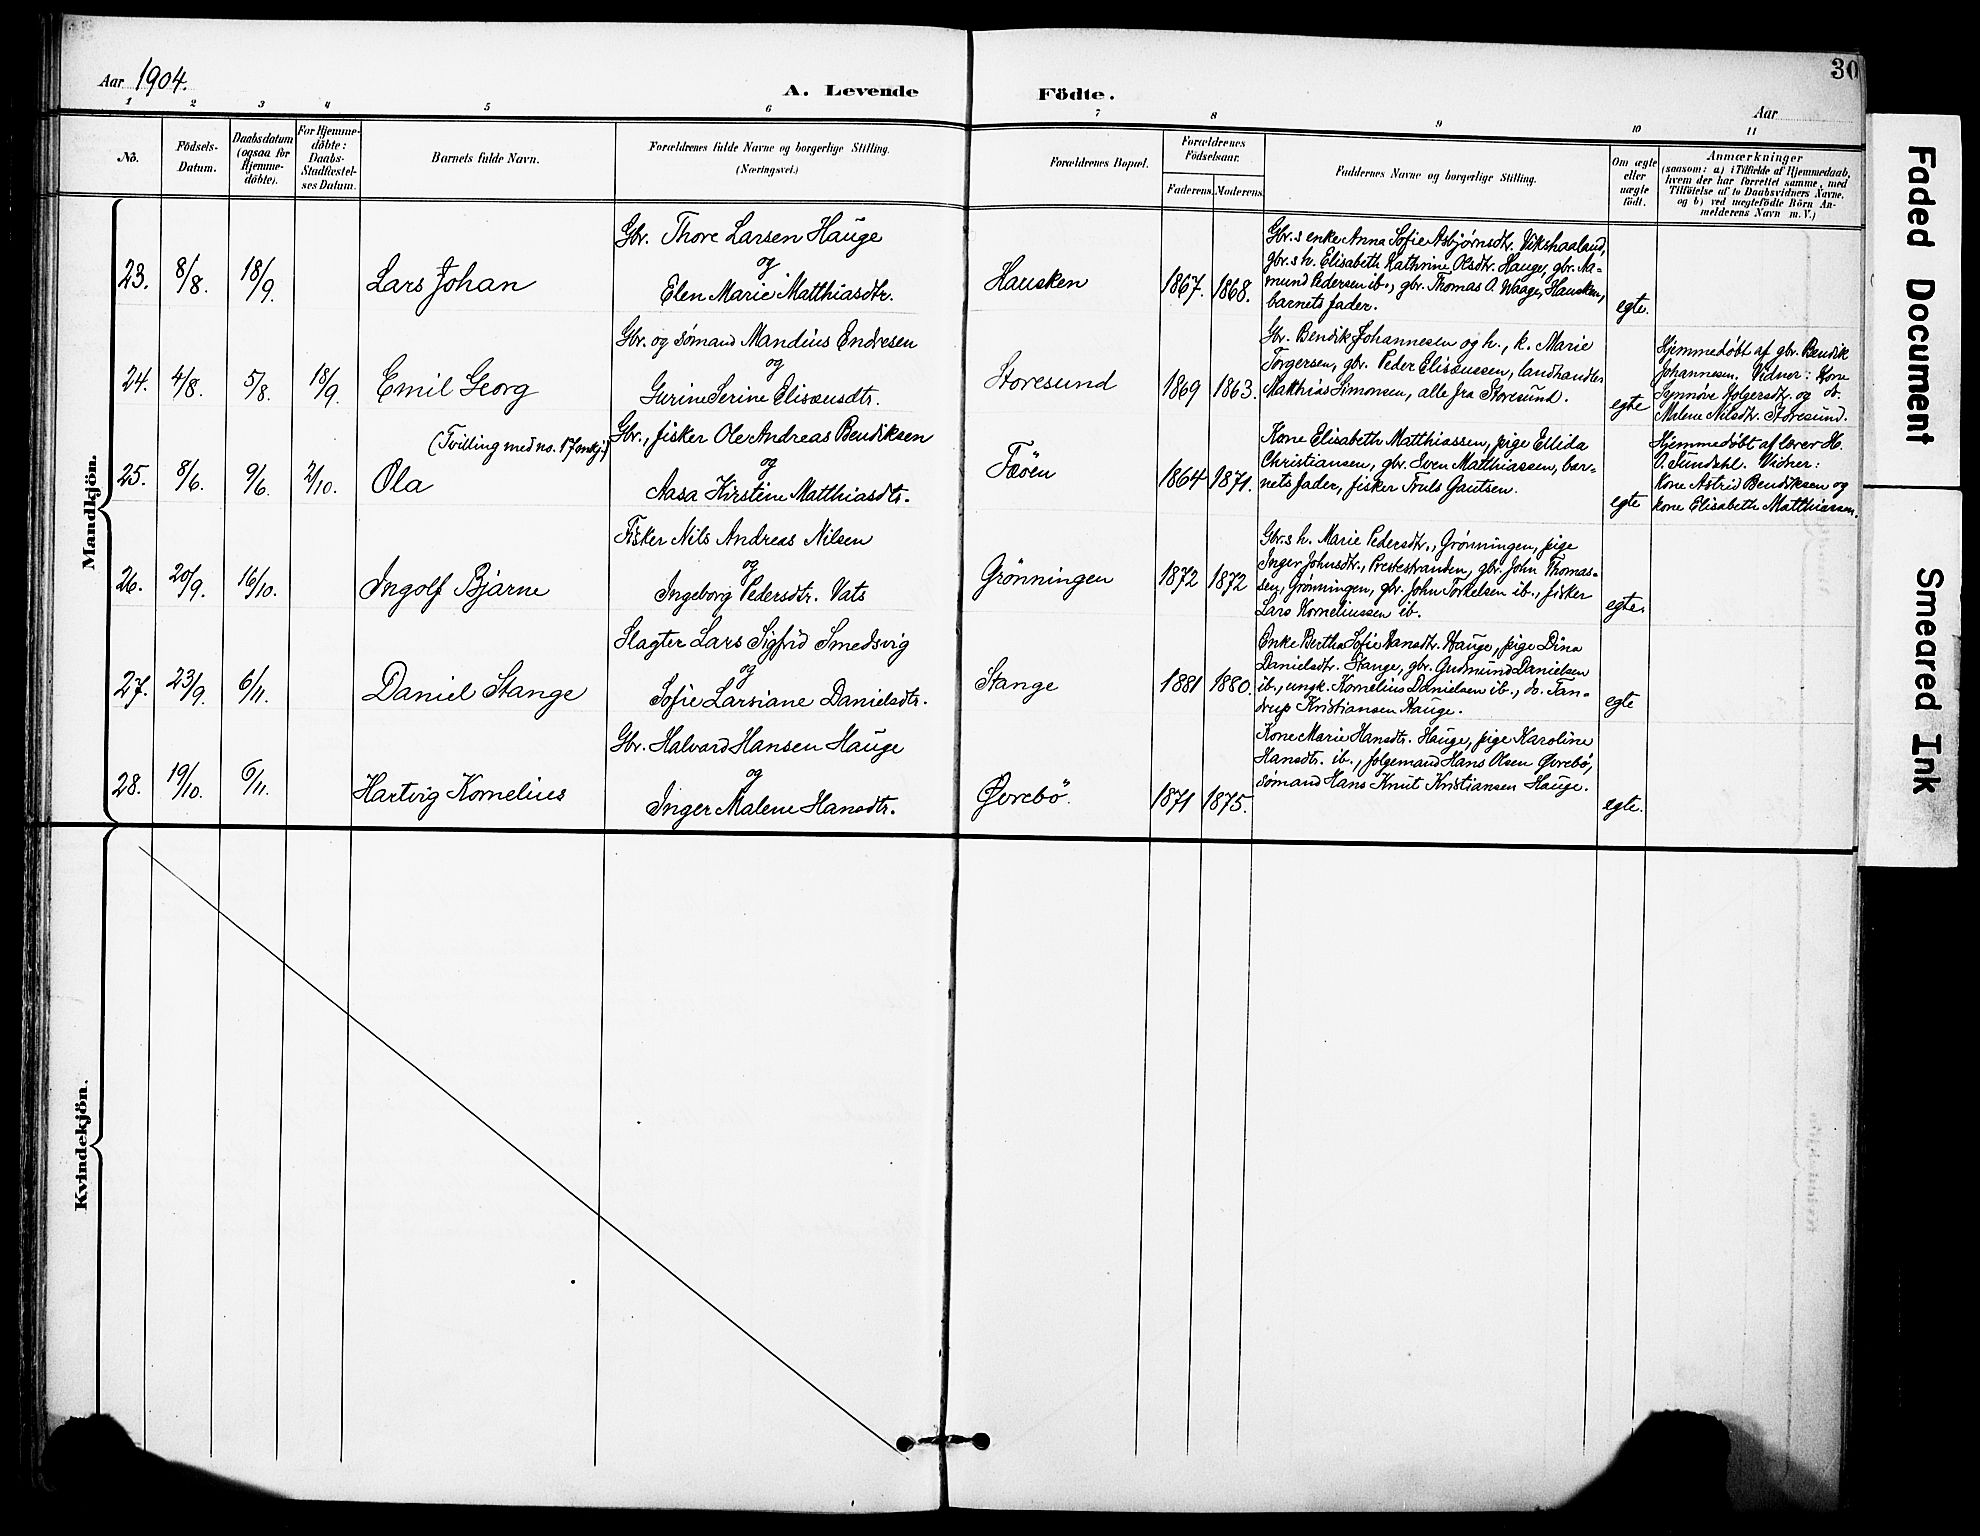 Aar 1904.
A. Levende Födte.
Aar
30
1 2 3 4 5 6 7 8 9 10 11
No.
Födsels-
Datum.
Daabsdatum
(ogsaa for
Hjemme-
döbte).
For Hjemme-
döbte:
Daabs-
Stadfæstel-
ses Datum.
Barnets fulde Navn.
Forældrenes fulde Navne og borgerlige Stilling.
(Næringsvei.)
Forældrenes Bopæl.
Forældrenes
Födselsaar.
Faderens. Moderens.
Faddernes Navne og borgerlige Stilling.
Om ægte
eller
uægte
födt.
Anmærkninger
(saasom: a) i Tilfælde af Hjemmedaab,
hvem der har forrettet samme, med
Tilföielse af to Daabsvidners Navne,
og b) ved uægtefödte Börn An-
melderens Navn m. V.)
Mandkjön.
23. 8/8. 18/9.
Lars Johan
Gbr. Thore Larsen Hauge
og
Elen Marie Matthiasdtr.
Hausken
1867. 1868.
Gbr.s enke Anna Sofie Asbjørnsdtr. Vikshaaland,
gbr.s h. Elisabeth Kathrine Olsdtr. Hauge, gbr. Aa-
mund Pedersen ib., gbr. Thomas A. Waage, Hausken,
barnets fader.
egte.
24. 4/8. 5/8. 18/9.
Emil Georg
Gbr. og sømand Mandius Endresen
og
Gurine Serine Elisæusdtr.
Storesund
1869 1863.
Gbr. Bendik Johannesen og h., k. Marie
Torgersen, gbr. Peder Elisæussen, landhandler
Matthias Simonsen, alle fra Storesund.
egte
Hjemmedøbt af gbr. Bendik
Johannesen. Vidner: Kone
Synnøve Holgersdtr. og do.
Malene Nilsdtr. Storesund.
25. 8/6. 9/6. 2/10.
(Tvilling med no. 17 mkj.)
Ola
Gbr., fisker Ole Andreas Bendiksen
og
Aasa Kirstine Matthiasdtr.
Fæöen
1864 1871.
Kone Elisabeth Matthiassen, pige Ellida
Christiansen, gbr. Sven Matthiassen, bar-
nets fader, fisker Truls Gautsen.
egte
Hjemmedøbt af lærer H.
O. Sundahl. Vidner:
Kone Astrid Bendiksen og
kone Elisabeth Matthiassen.
26. 20/9. 16/10.
Ingolf Bjarne
Fisker Nils Andreas Nilsen
og
Ingeborg Pedersdtr. Vats
Grönningen
1872 1872
Gbr.s h. Marie Pedersdtr., Grønningen, pige
Inger Johnsdtr., Prestestranden, gbr. John Thomas-
sen, Grønningen, gbr. John Torkelsen ib., fisker
Lars Korneliussen ib.
egte.
27. 23/9. 6/11.
Daniel Stange
Slagter Lars Sigfrid Smedsvig
og
Sofie Larsiane Danielsdtr.
Stange
1881 1880.
Enke Bertha Sofie Hansdtr. Hauge, pige Dina
Danielsdtr. Stange, gbr. Gudmund Danielsen
ib., ungk. Kornelius Danielsen ib., do. Tan-
drup Kristiansen Hauge.
egte
28. 19/10. 6/11.
Hartvig Kornelius
Gbr. Halvard Hansen Hauge
og
Inger Malene Hansdtr.
Øvrebö.
1871 1875.
Kone Marie Hansdtr. Hauge, pige Karoline
Hansdtr. ib., folgemand Hans Olsen Øvrebö,
sømand Hans Knut Kristiansen Hauge.
egte.
Kvindekjön.
Faded Document
Smeared Ink